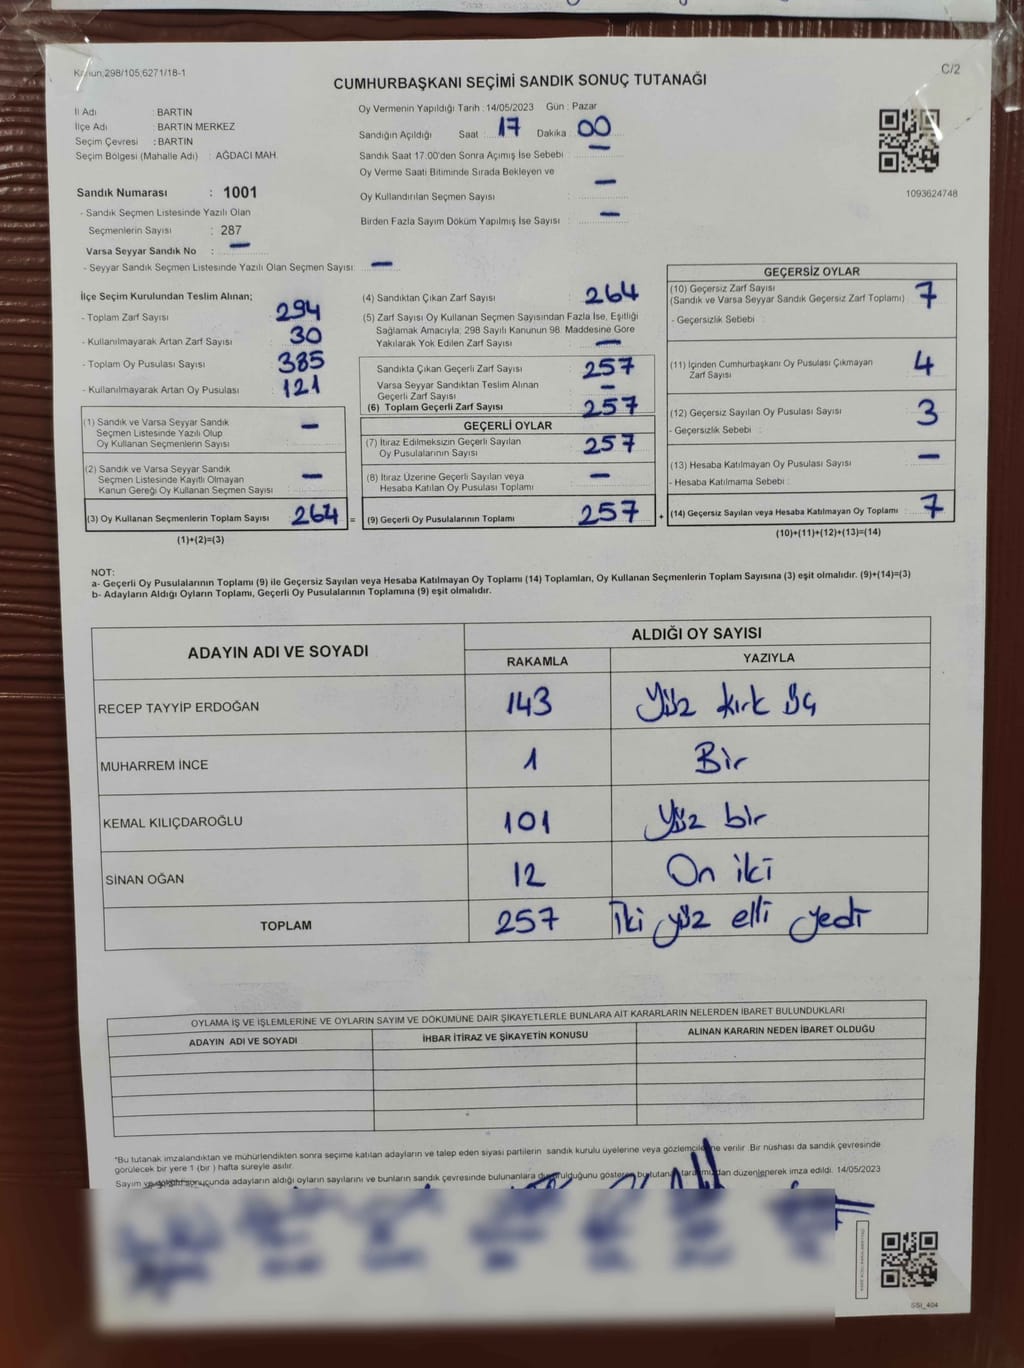 Kanun:298/105;6271/18-1
C/2
CUMHURBAŞKANI SEÇİMİ SANDIK SONUÇ TUTANAĞI
İl Adı : BARTIN
İlçe Adı : BARTIN MERKEZ
Seçim Çevresi : BARTIN
Seçim Bölgesi (Mahalle Adı) : AĞDACI MAH.
Oy Vermenin Yapıldığı Tarih :14/05/2023 Gün : Pazar
Sandığın Açıldığı Saat : 17 Dakika : 00
Sandık Saat 17.00'den Sonra Açımış İse Sebebi : —
Oy Verme Saati Bitiminde Sırada Bekleyen ve
Oy Kullandırılan Seçmen Sayısı : —
Birden Fazla Sayım Döküm Yapılmış İse Sayısı : —
1093624748
Sandık Numarası : 1001
- Sandık Seçmen Listesinde Yazılı Olan
Seçmenlerin Sayısı : 287
Varsa Seyyar Sandık No : —
- Seyyar Sandık Seçmen Listesinde Yazılı Olan Seçmen Sayısı: —
İlçe Seçim Kurulundan Teslim Alınan;
- Toplam Zarf Sayısı : 294
- Kullanılmayarak Artan Zarf Sayısı : 30
- Toplam Oy Pusulası Sayısı : 385
- Kullanılmayarak Artan Oy Pusulası : 121
(1) Sandık ve Varsa Seyyar Sandık
Seçmen Listesinde Yazılı Olup
Oy Kullanan Seçmenlerin Sayısı : —
(2) Sandık ve Varsa Seyyar Sandık
Seçmen Listesinde Kayıtlı Olmayan
Kanun Gereği Oy Kullanan Seçmen Sayısı : —
(3) Oy Kullanan Seçmenlerin Toplam Sayısı : 264 =
(1)+(2)=(3)
(4) Sandıktan Çıkan Zarf Sayısı : 264
(5) Zarf Sayısı Oy Kullanan Seçmen Sayısından Fazla İse, Eşitliği
Sağlamak Amacıyla; 298 Sayılı Kanunun 98. Maddesine Göre
Yakılarak Yok Edilen Zarf Sayısı : —
Sandıkta Çıkan Geçerli Zarf Sayısı : 257
Varsa Seyyar Sandıktan Teslim Alınan
Geçerli Zarf Sayısı : —
(6) Toplam Geçerli Zarf Sayısı : 257
GEÇERLİ OYLAR
(7) İtiraz Edilmeksizin Geçerli Sayılan
Oy Pusulalarının Sayısı : 257
(8) İtiraz Üzerine Geçerli Sayılan veya
Hesaba Katılan Oy Pusulası Toplamı : —
(9) Geçerli Oy Pusulalarının Toplamı : 257 +
GEÇERSİZ OYLAR
(10) Geçersiz Zarf Sayısı
(Sandık ve Varsa Seyyar Sandık Geçersiz Zarf Toplamı) : 7
- Geçersizlik Sebebi :
(11) İçinden Cumhurbaşkanı Oy Pusulası Çıkmayan
Zarf Sayısı : 4
(12) Geçersiz Sayılan Oy Pusulası Sayısı : 3
- Geçersizlik Sebebi :
(13) Hesaba Katılmayan Oy Pusulası Sayısı : —
- Hesaba Katılmama Sebebi :
(14) Geçersiz Sayılan veya Hesaba Katılmayan Oy Toplamı : 7
(10)+(11)+(12)+(13)=(14)
NOT:
a- Geçerli Oy Pusulalarının Toplamı (9) ile Geçersiz Sayılan veya Hesaba Katılmayan Oy Toplamı (14) Toplamları, Oy Kullanan Seçmenlerin Toplam Sayısına (3) eşit olmalıdır. (9)+(14)=(3)
b- Adayların Aldığı Oyların Toplamı, Geçerli Oy Pusulalarının Toplamına (9) eşit olmalıdır.
ADAYIN ADI VE SOYADI ALDIĞI OY SAYISI
RAKAMLA YAZIYLA
RECEP TAYYİP ERDOĞAN 143 Yüz kırk üç
MUHARREM İNCE 1 Bir
KEMAL KILIÇDAROĞLU 101 Yüz bir
SİNAN OĞAN 12 On iki
TOPLAM 257 İki yüz elli yedi
OYLAMA İŞ VE İŞLEMLERİNE VE OYLARIN SAYIM VE DÖKÜMÜNE DAİR ŞİKAYETLERLE BUNLARA AİT KARARLARIN NELERDEN İBARET BULUNDUKLARI
ADAYIN ADI VE SOYADI İHBAR İTİRAZ VE ŞİKAYETİN KONUSU ALINAN KARARIN NEDEN İBARET OLDUĞU
*Bu tutanak imzalandıktan ve mühürlendikten sonra seçime katılan adayların ve talep eden siyasi partilerin sandık kurulu üyelerine veya gözlemcilerine verilir. Bir nüshası da sandık çevresinde
görülecek bir yere 1 (bir) hafta süreyle asılır.
Sayım ve döküm sonucunda adayların aldığı oyların sayılarını ve bunların sandık çevresinde bulunanlara duyurulduğunu gösteren bu tutanak tarafımızdan düzenlenerek imza edildi. 14/05/2023
SSI_404